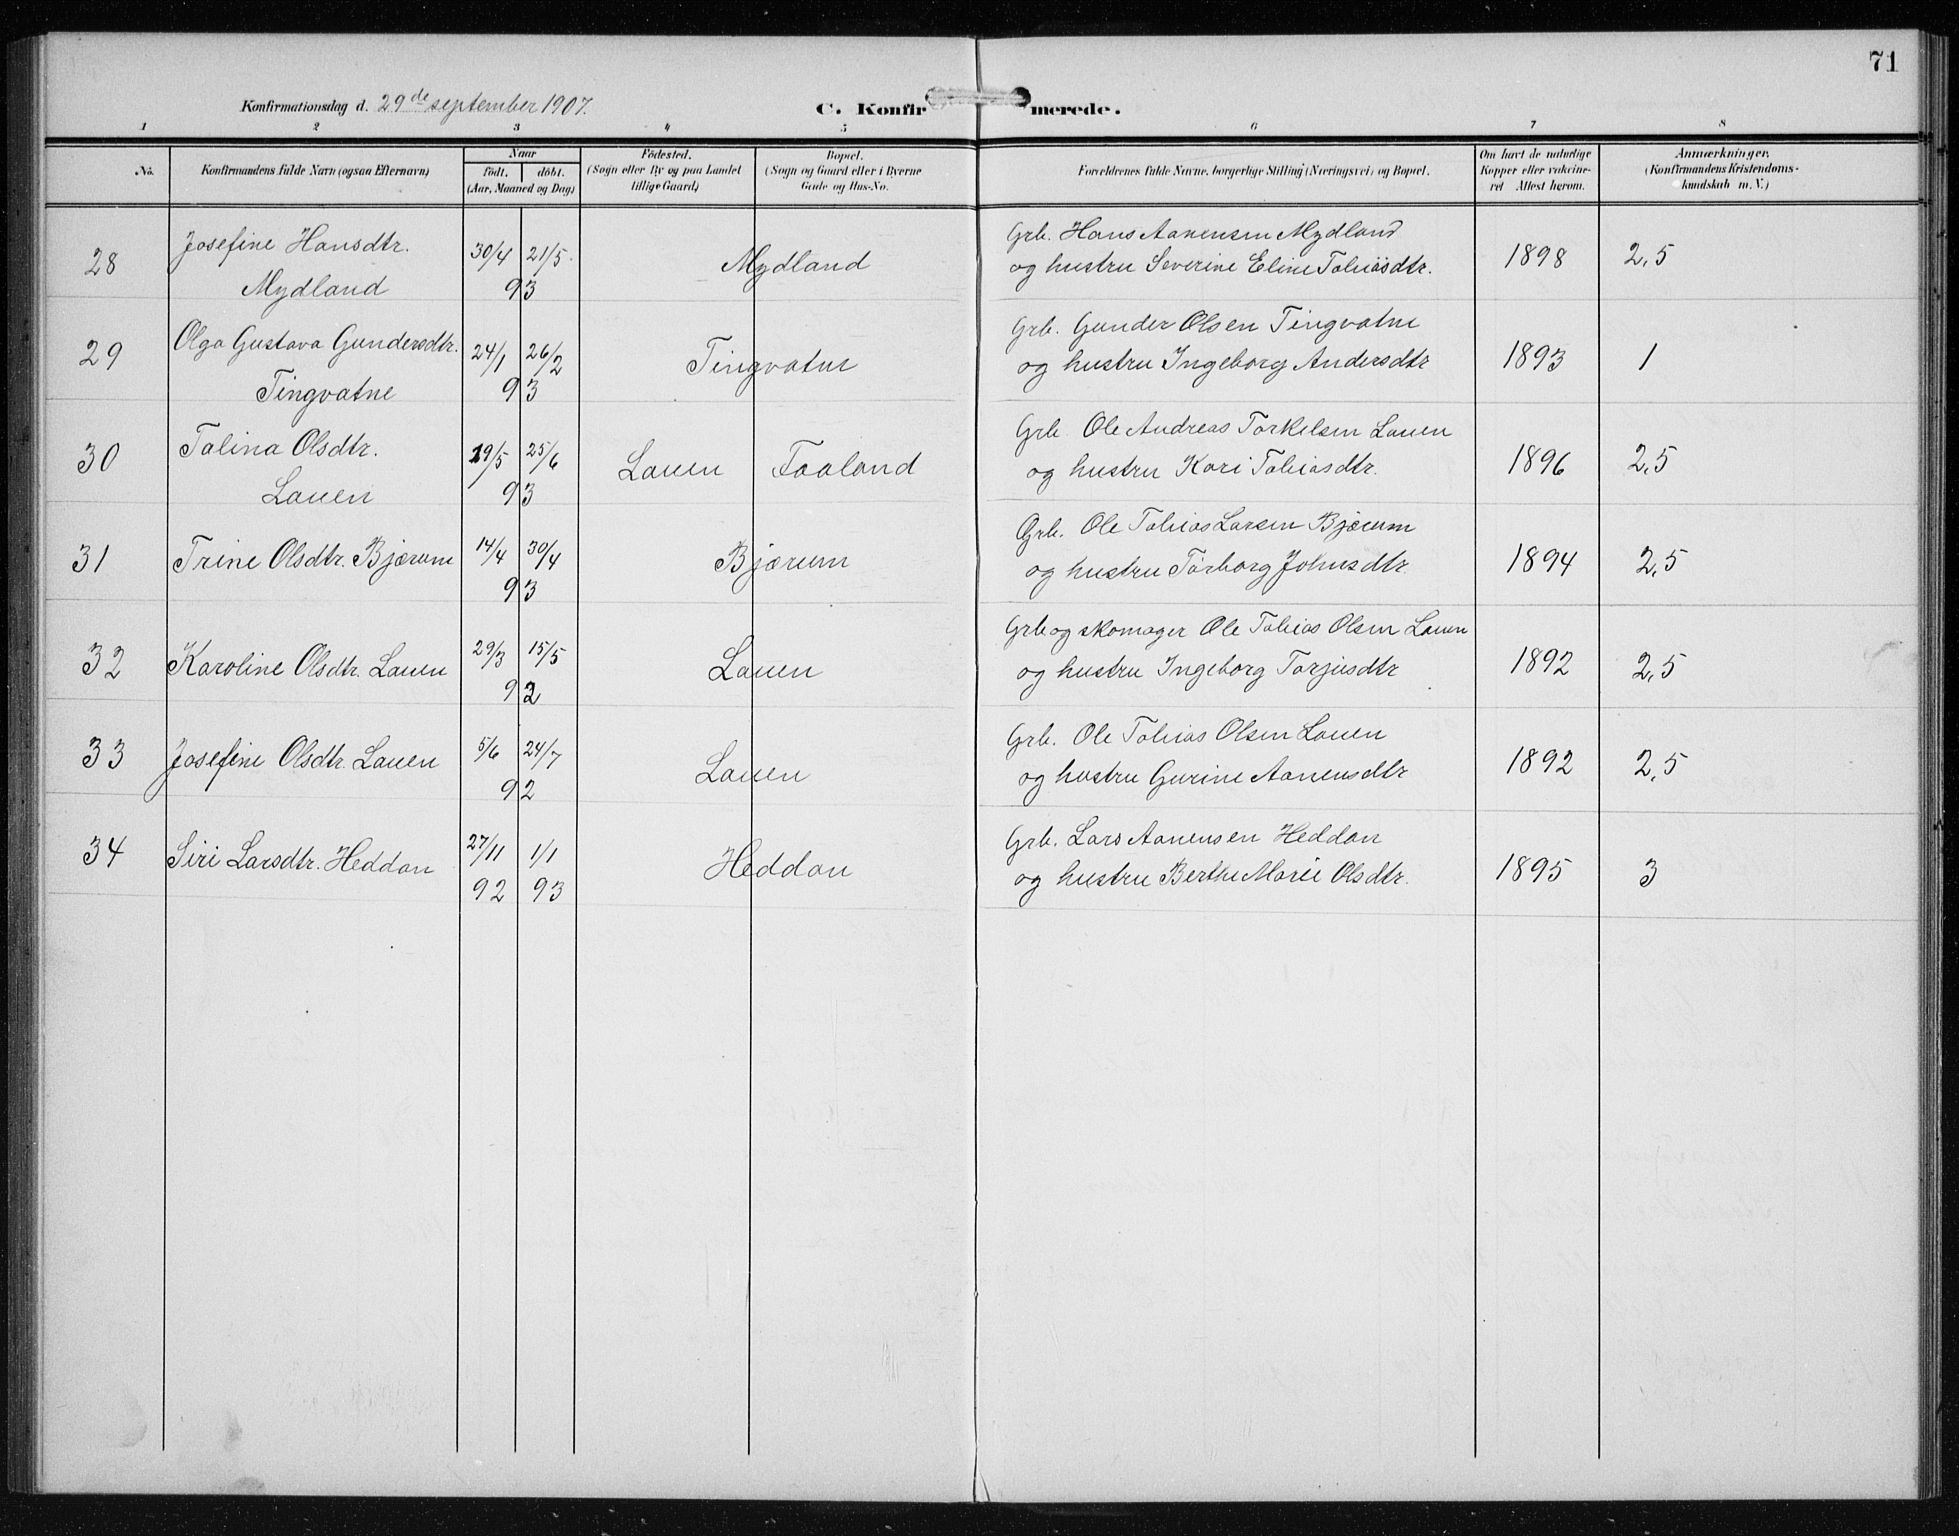 71
Konfirmationsdag d. 29de september 1907.
C. Konfirmerede.
1 2 3 4 5 6 7 8
No.
Konfirmandens fulde Navn (ogsaa Efternavn)
Naar
födt. döbt.
(Aar, Maaned og Dag)
Födested.
(Sogn eller By og paa Landet
tillige Gaard)
Bopæl.
(Sogn og Gaard eller i Byerne
Gade og Hus-No.
Forældrenes fulde Navne, borgerlige Stilling (Næringsvei) og Bopæl.
Om havt de naturlige
Kopper eller vakcine-
ret Attest herom.
Anmærkninger.
(Konfirmandens Kristendoms-
kundskab m. V.)
28 Josefine Hansdtr. 30/4 21/5 Mydland Grb. Hans Aanensen Mydland 1898 2,5
Mydland 93 og hustru Severine Eline Tobiasdtr.
29 Olga Gustava Gundersdtr. 24/1 26/2 Tingvatne Grb. Gunder Olsen Tingvatne 1893 1
Tingvatne 93 og hustru Ingeborg Andersdtr
30 Talina Olsdtr. 29/5 25/6 Lauen Faaland Grb. Ole Andreas Torkelsen Lauen 1896 2,5
Lauen 93 og hustru Kari Tobiasdtr.
31 Trine Olsdtr. Bjærum 14/4 30/4 Bjærum Grb. Ole Tobias Larsen Bjærum 1894 2,5
93 og hustru Torborg Johnsdtr.
32 Karoline Olsdtr. Lauen 29/3 15/5 Lauen Grb og skomager Ole Tobias Olsen Lauen 1892 2,5
92 og hustru Ingeborg Torjusdtr
33 Josefine Olsdtr. Lauen 5/6 24/7 Lauen Grb. Ole Tobias Olsen Lauen 1892 2,5
92 og hustru Gurine Aanensdtr
34 Siri Larsdtr. Heddan 27/11 1/1 Heddan Grb. Lars Aanensen Heddan 1895 3
92 93 og hustru Berthe Marie Olsdtr.